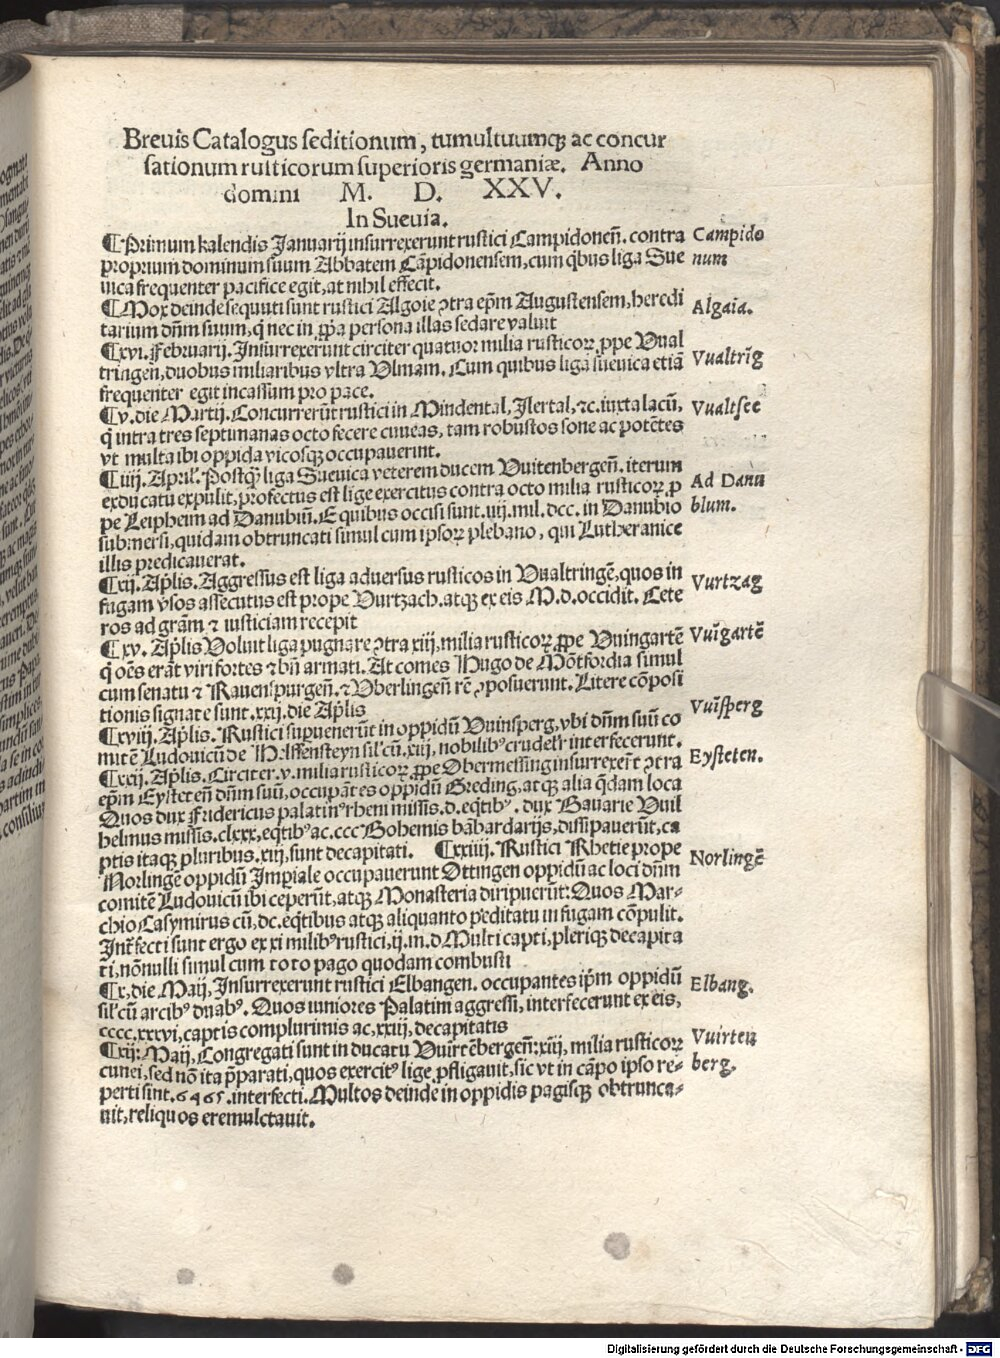 Breuis Catalogus seditionum, tumultuumqꝫ ac concur
sationum rusticorum superioris germaniæ. Anno
domini M. D. XXV.
In Sueuia.
¶Primum kalendis Januarij insurrexerunt rustici Campidoneñ. contra
proprium dominum suum Abbatem Cāpidonensem, cum q̇bus liga Sue
uica frequenter pacifice egit, at nihil effecit.
Campido
num
¶Mox deinde sequuti sunt rustici Algoie ꝯtra ep̄m Augustensem, heredi
tarium dñm suum, q̇ nec in ꝓp̄a persona illas sedare valuit
Algaia.
¶xvi. Februarij. Insurrexerunt circiter quatuor milia rusticoꝝ ꝓpe Vual
tringen, duobus miliaribus vltra Vlmam. Cum quibus liga sueuica etiā
frequenter egit incassum pro pace.
Vualtrīg
¶v. die Martij. Concurrerūt rustici in Mindental, Ilertal, ⁊c. iuxta lacū,
q̇ intra tres septimanas octo fecere cuneas, tam robustos sone ac potētes
vt multa ibi oppida vicosqꝫ occupauerint.
Vualtsee
¶iiij. April̄. Postq̄ȝ liga Sueuica veterem ducem Vuitenbergeñ. iterum
ex ducatu expulit, profectus est lige exercitus contra octo milia rusticoꝝ ꝓ
pe Leipheim ad Danubiū. E quibus occisi sunt. iiij. mil. dcc. in Danubio
submersi, quidam obtruncati simul cum ipsoꝝ plebano, qui Lutheranice
illis predicauerat.
Ad Danu
bium.
¶xij. Ap̄lis. Aggressus est liga aduersus rusticos in Vualtringē, quos in
fugam vsos assecutus est prope Vurtzach. atqꝫ ex eis M. d. occidit. Cete
ros ad grām ⁊ iusticiam recepit
Vurtzag
¶xv. Ap̄lis Voluit liga pugnare ꝯtra xiij, milia rusticoꝝ ꝓpe Vuingartē
q̇ oēs erāt viri fortes ⁊ bn̄ armati. At comes Hugo de Mōtfordia simul
cum senatu ⁊ Rauenspurgeñ. ⁊ Vberlingeñ rē ꝯposuerunt. Litere cōposi
tionis signate sunt. xxij. die Ap̄lis
Vuīgartē
¶xviij. Ap̄lis. Rustici supuenerūt in oppidū Vuinsperg, vbi dñm suū co
mitē Ludouicū de Helffensteyn sil̄ cū. xiij, nobilibꝰ crudelr̄ interfecerunt.
Vuīsperg
¶xxij. Ap̄lis. Circiter. v. milia rusticoꝝ ꝓpe Obermessing insurrexer̄t ꝯtra
ep̄m Eysteteñ dñm suū, occupātes oppidū Greding, atqꝫ alia q̄dam loca
Quos dux Fridericus palatinꝰ rheni missis. d. eq̇tibꝰ. dux Bauarie Vuil
helmus missis. clxxx, eq̇tibꝰ ac. ccc Bohemis bābardarijs, dissipauerūt, ca
ptis itaqꝫ pluribus. xiij, sunt decapitati. ¶xxiiij. Rustici Rhetie prope
Eysteten.
Norlingē oppidū Imperiale occupauerunt Ottingen oppidū ac loci dñm
comitē Ludouicū ibi ceperūt, atqꝫ Monasteria diripuerūt: Quos Mar-
chio Casymirus cū, dc. eq̇tibus atqꝫ aliquanto peditatu in fugam cōpulit.
Int̄fecti sunt ergo ex xi milibꝰ rustici, ij. m. d Multi capti, pleriqꝫ decapita
ti, nōnulli simul cum toto pago quodam combusti
Norlingē
¶x, die Maij, Insurrexerunt rustici Elbangen. occupantes ip̄m oppidū
sil̄ cū arcibꝰ duabꝰ. Quos iuniores Palatini aggressi, interfecerunt ex eis,
cccc. xxxvi, captis complurimis ac, xxiij, decapitatis
Elbang.
¶xij: Maij, Congregati sunt in ducatu Vuirtēbergeñ: xiij, milia rusticoꝝ
cunei, sed nō ita p̄parati, quos exercitꝰ lige ꝓfligauit, sic vt in cāpo ipso re-
perti sint. 6465. interfecti. Multos deinde in oppidis pagisqꝫ obtrunca-
uit, reliquos eremulctauit.
Vuirten
berg.
Digitalisierung gefördert durch die Deutsche Forschungsgemeinschaft - DFG